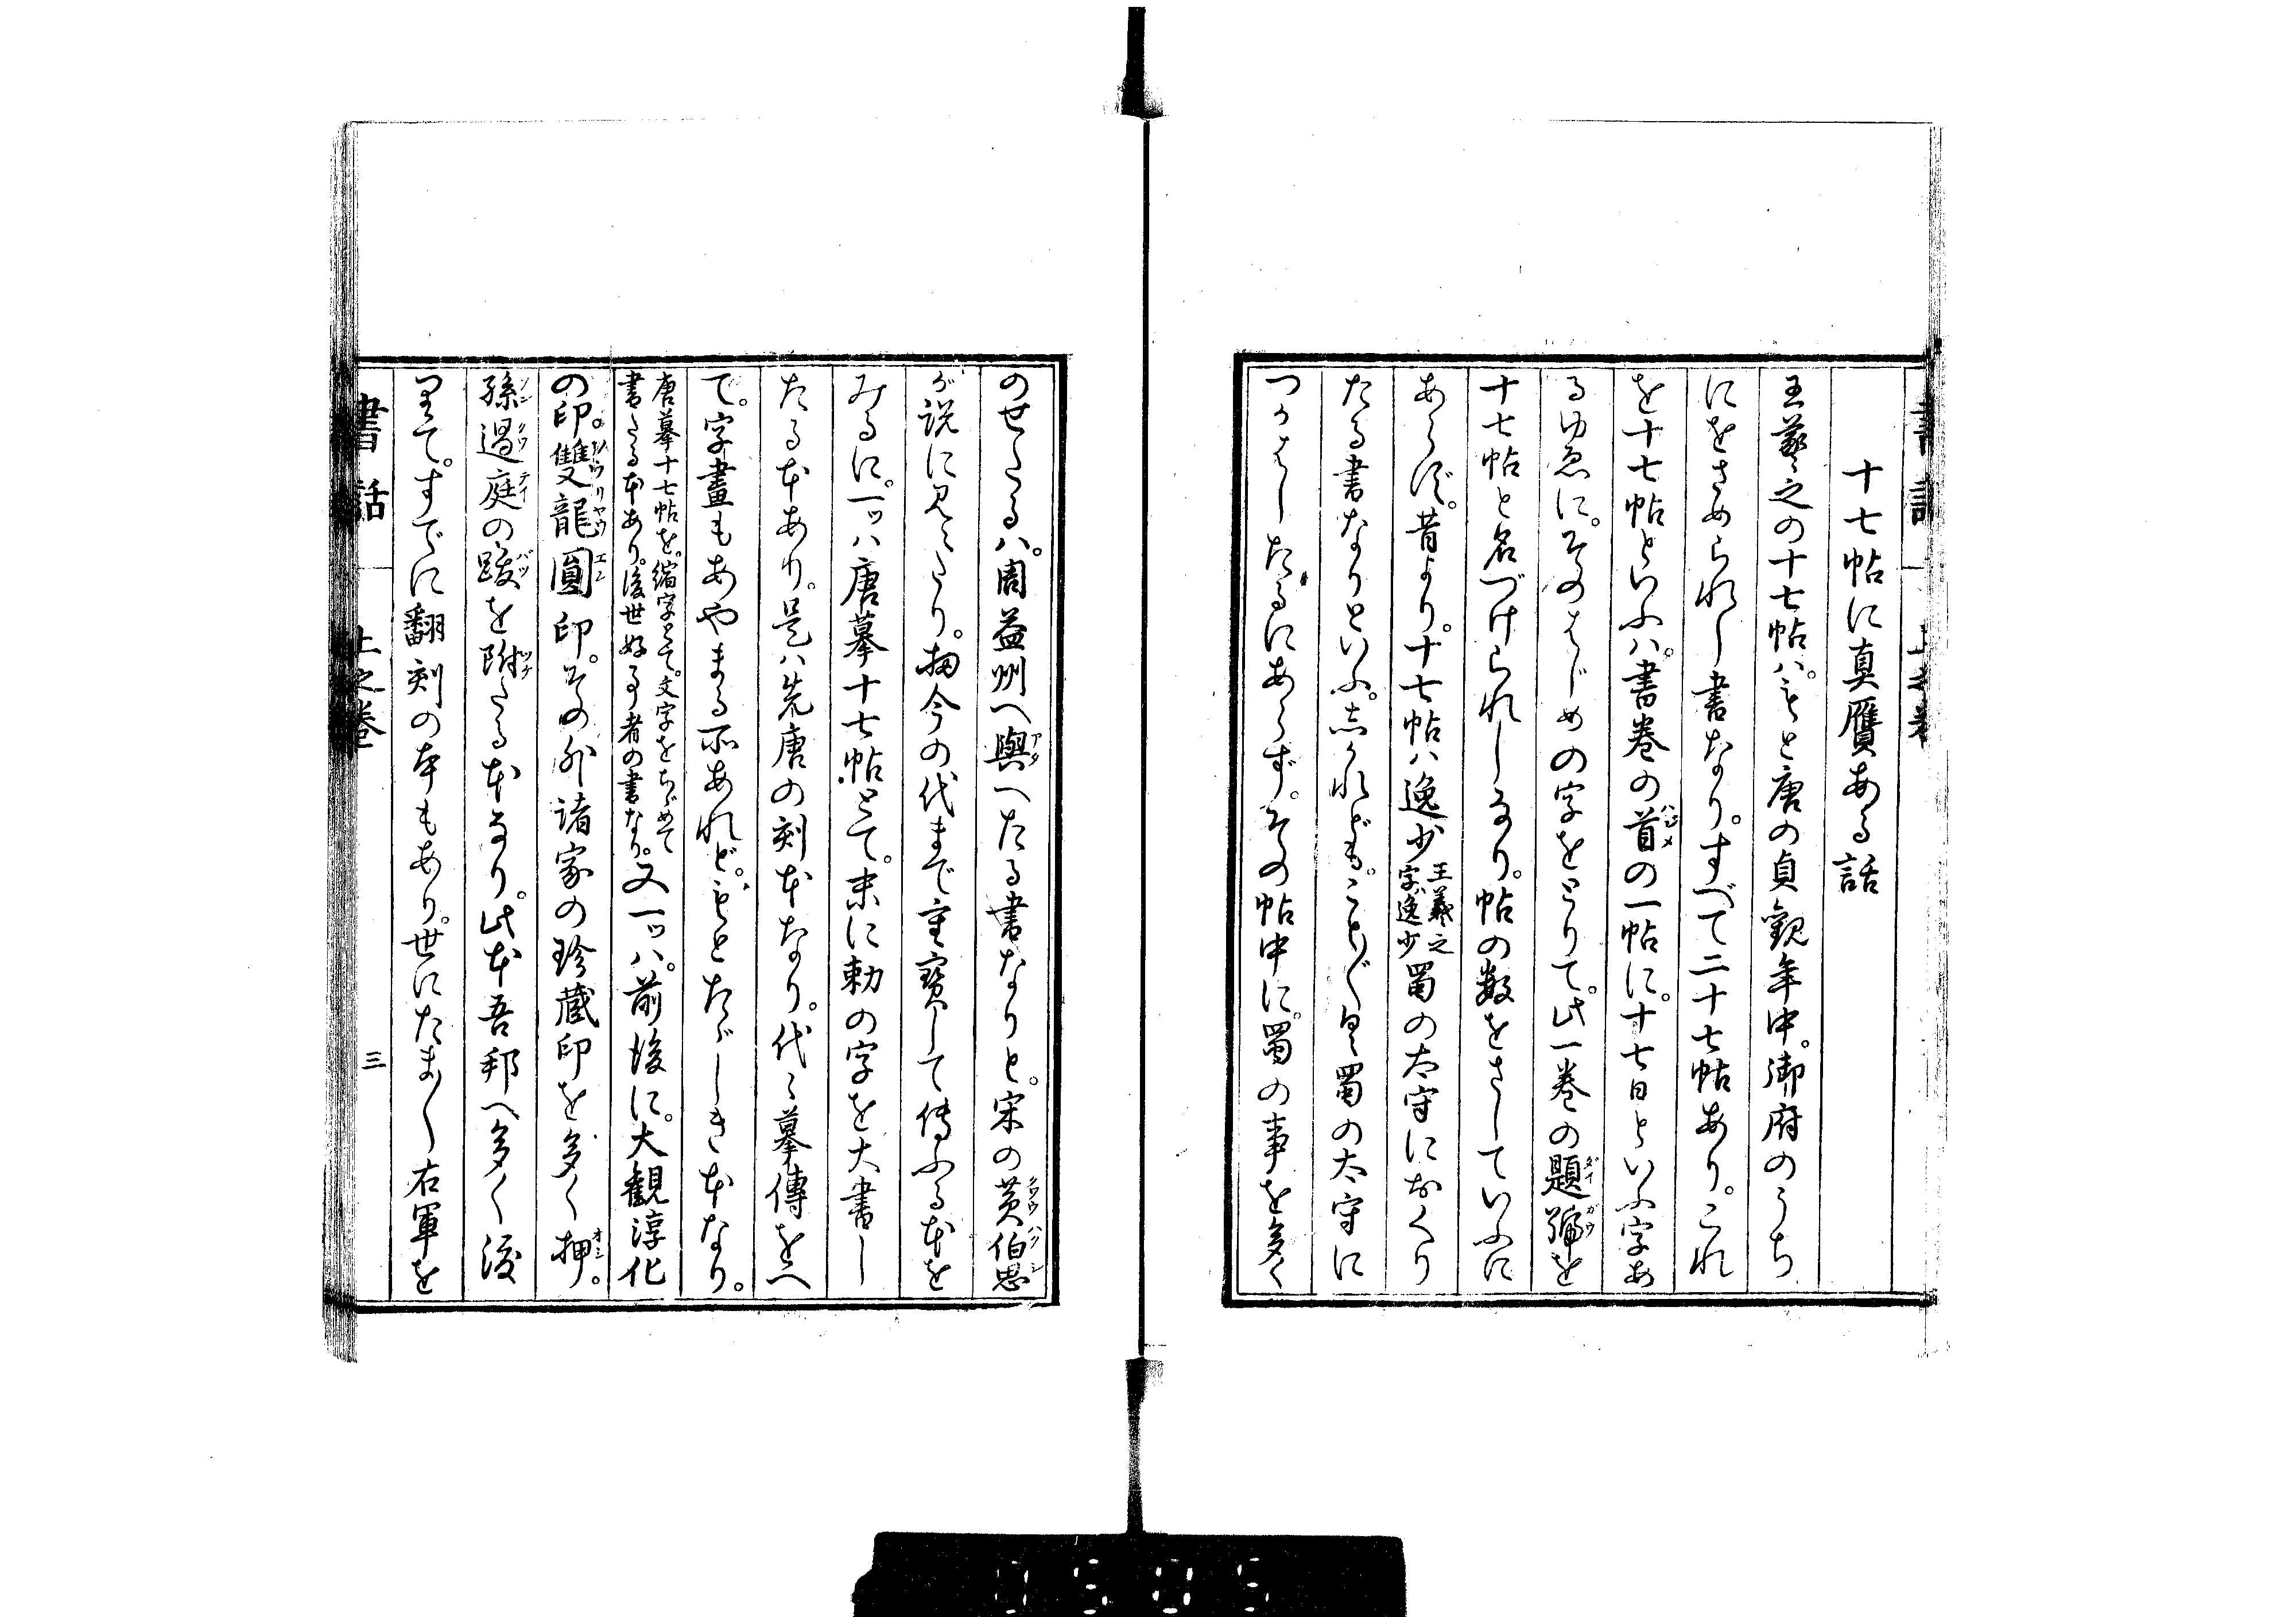 十七帖に真贋ある話
王羲之の十七帖ハ。もと唐の貞観年中。御府のうち
にをさめられし書なり。すべて二十七帖あり。これ
を十七帖といふハ。書巻の首の一帖に。十七日といふ字あ
るゆゑに。そのはじめの字をとりて。此一巻の題號を
十七帖と名づけられしなり。帖の数をさしていふに
あらず。昔より。十七帖ハ逸少王羲之字逸少蜀の太守におくり
たる書なりといふ。しかれども。ことごとく蜀の太守に
つかはしたるにあらず。その帖中に。蜀の事を多く
のせたるハ。周益州へ與へたる書なりと。宋の黄伯思
が説に見えたり。扨今の代まで重寳して傳ふる本を
みるに。一ツハ唐摹十七帖とて。末に勅の字を大書し
たる本あり。是ハ先唐の刻本なり。代々摹傳をへ
て。字畫もあやまる所あれど。もとたゞしき本なり。
唐摹十七帖を。縮字とて。文字をちゞめて
書たる本あり。後世好事者の書なり。又一ツハ。前後に。大観淳化
の印。雙龍圓印。その外諸家の珍蔵印を多く押。
孫過庭の跋を附たる本なり。此本吾邦へ多く渡
りて。すでに翻刻の本もあり。世にたま〱右軍を
書話
上之巻
三